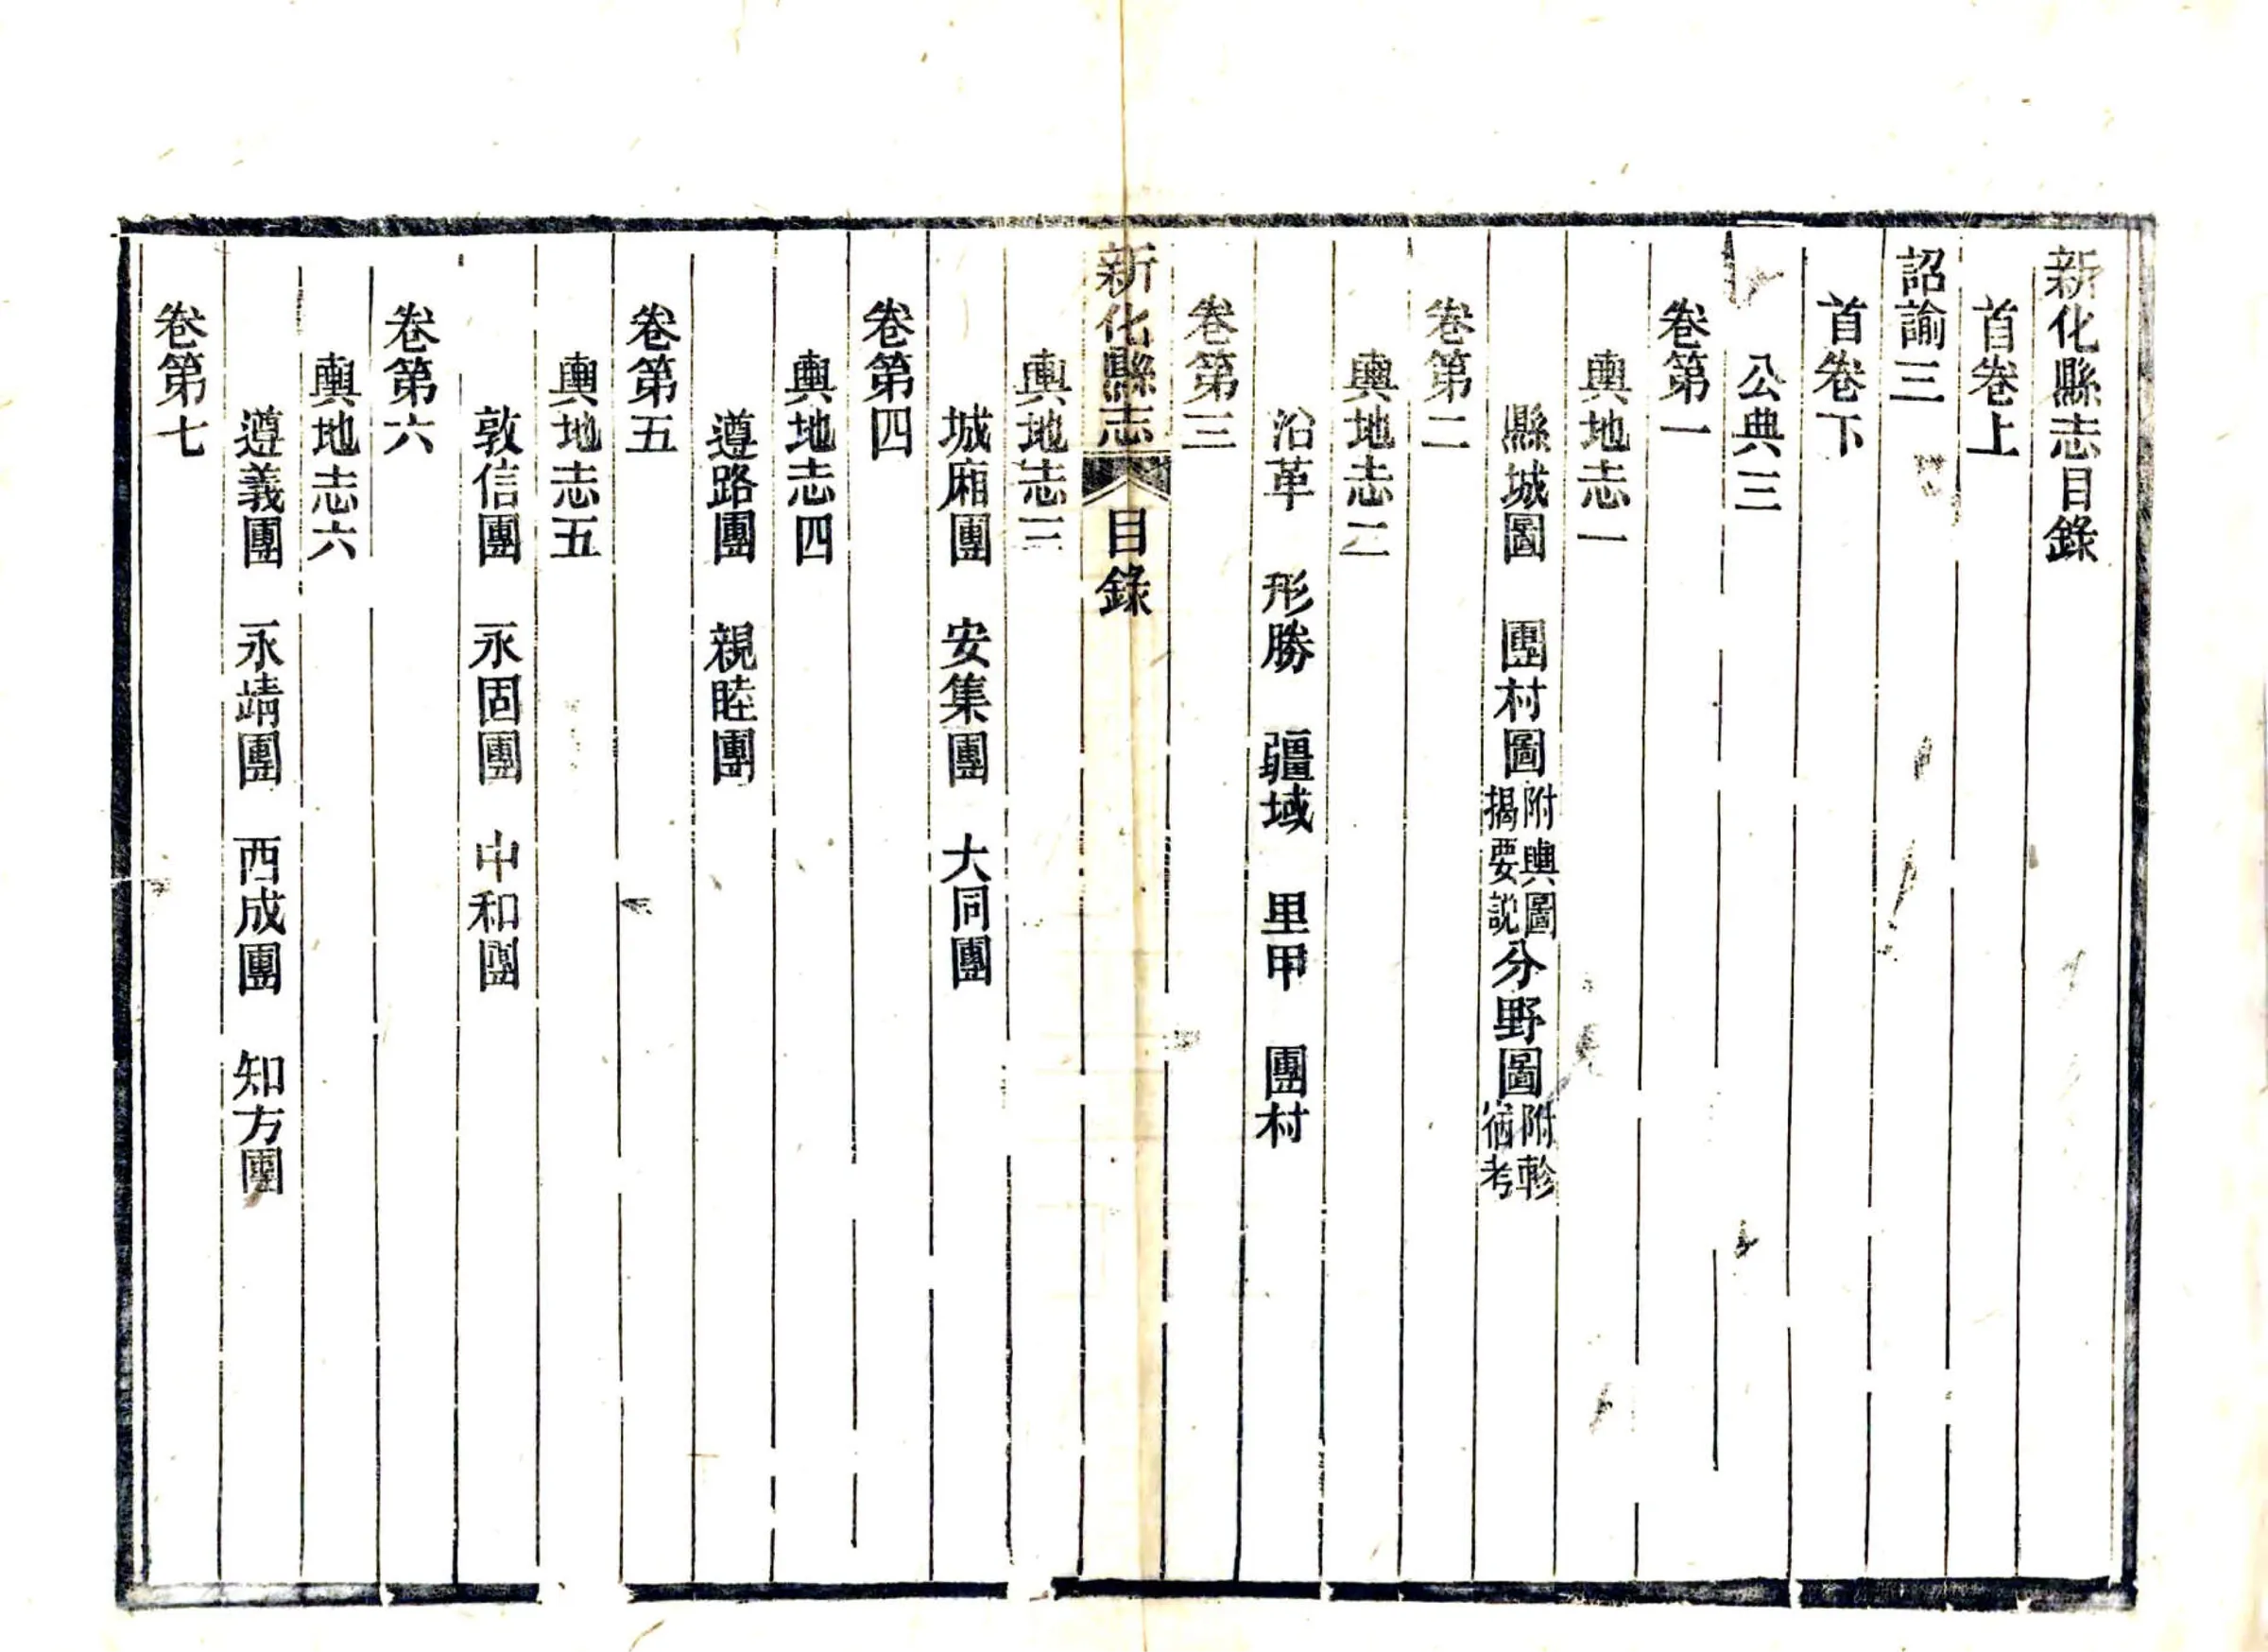 新化縣志目錄
首卷上
詔諭三
首卷下
公典三
卷第一
輿地志一
縣城圖　團村圖附輿圖揭要說分野圖附軫宿考
卷第二
輿地志二
沿革　形勝　疆域　里甲　團村
卷第三
新化縣志　目錄
輿地志三
城廂團　安集團　大同團
卷第四
輿地志四
遵路團　親睦團
卷第五
輿地志五
敦信團　永固團　中和團
卷第六
輿地志六
遵義團　永靖團　西成團　知方團
卷第七